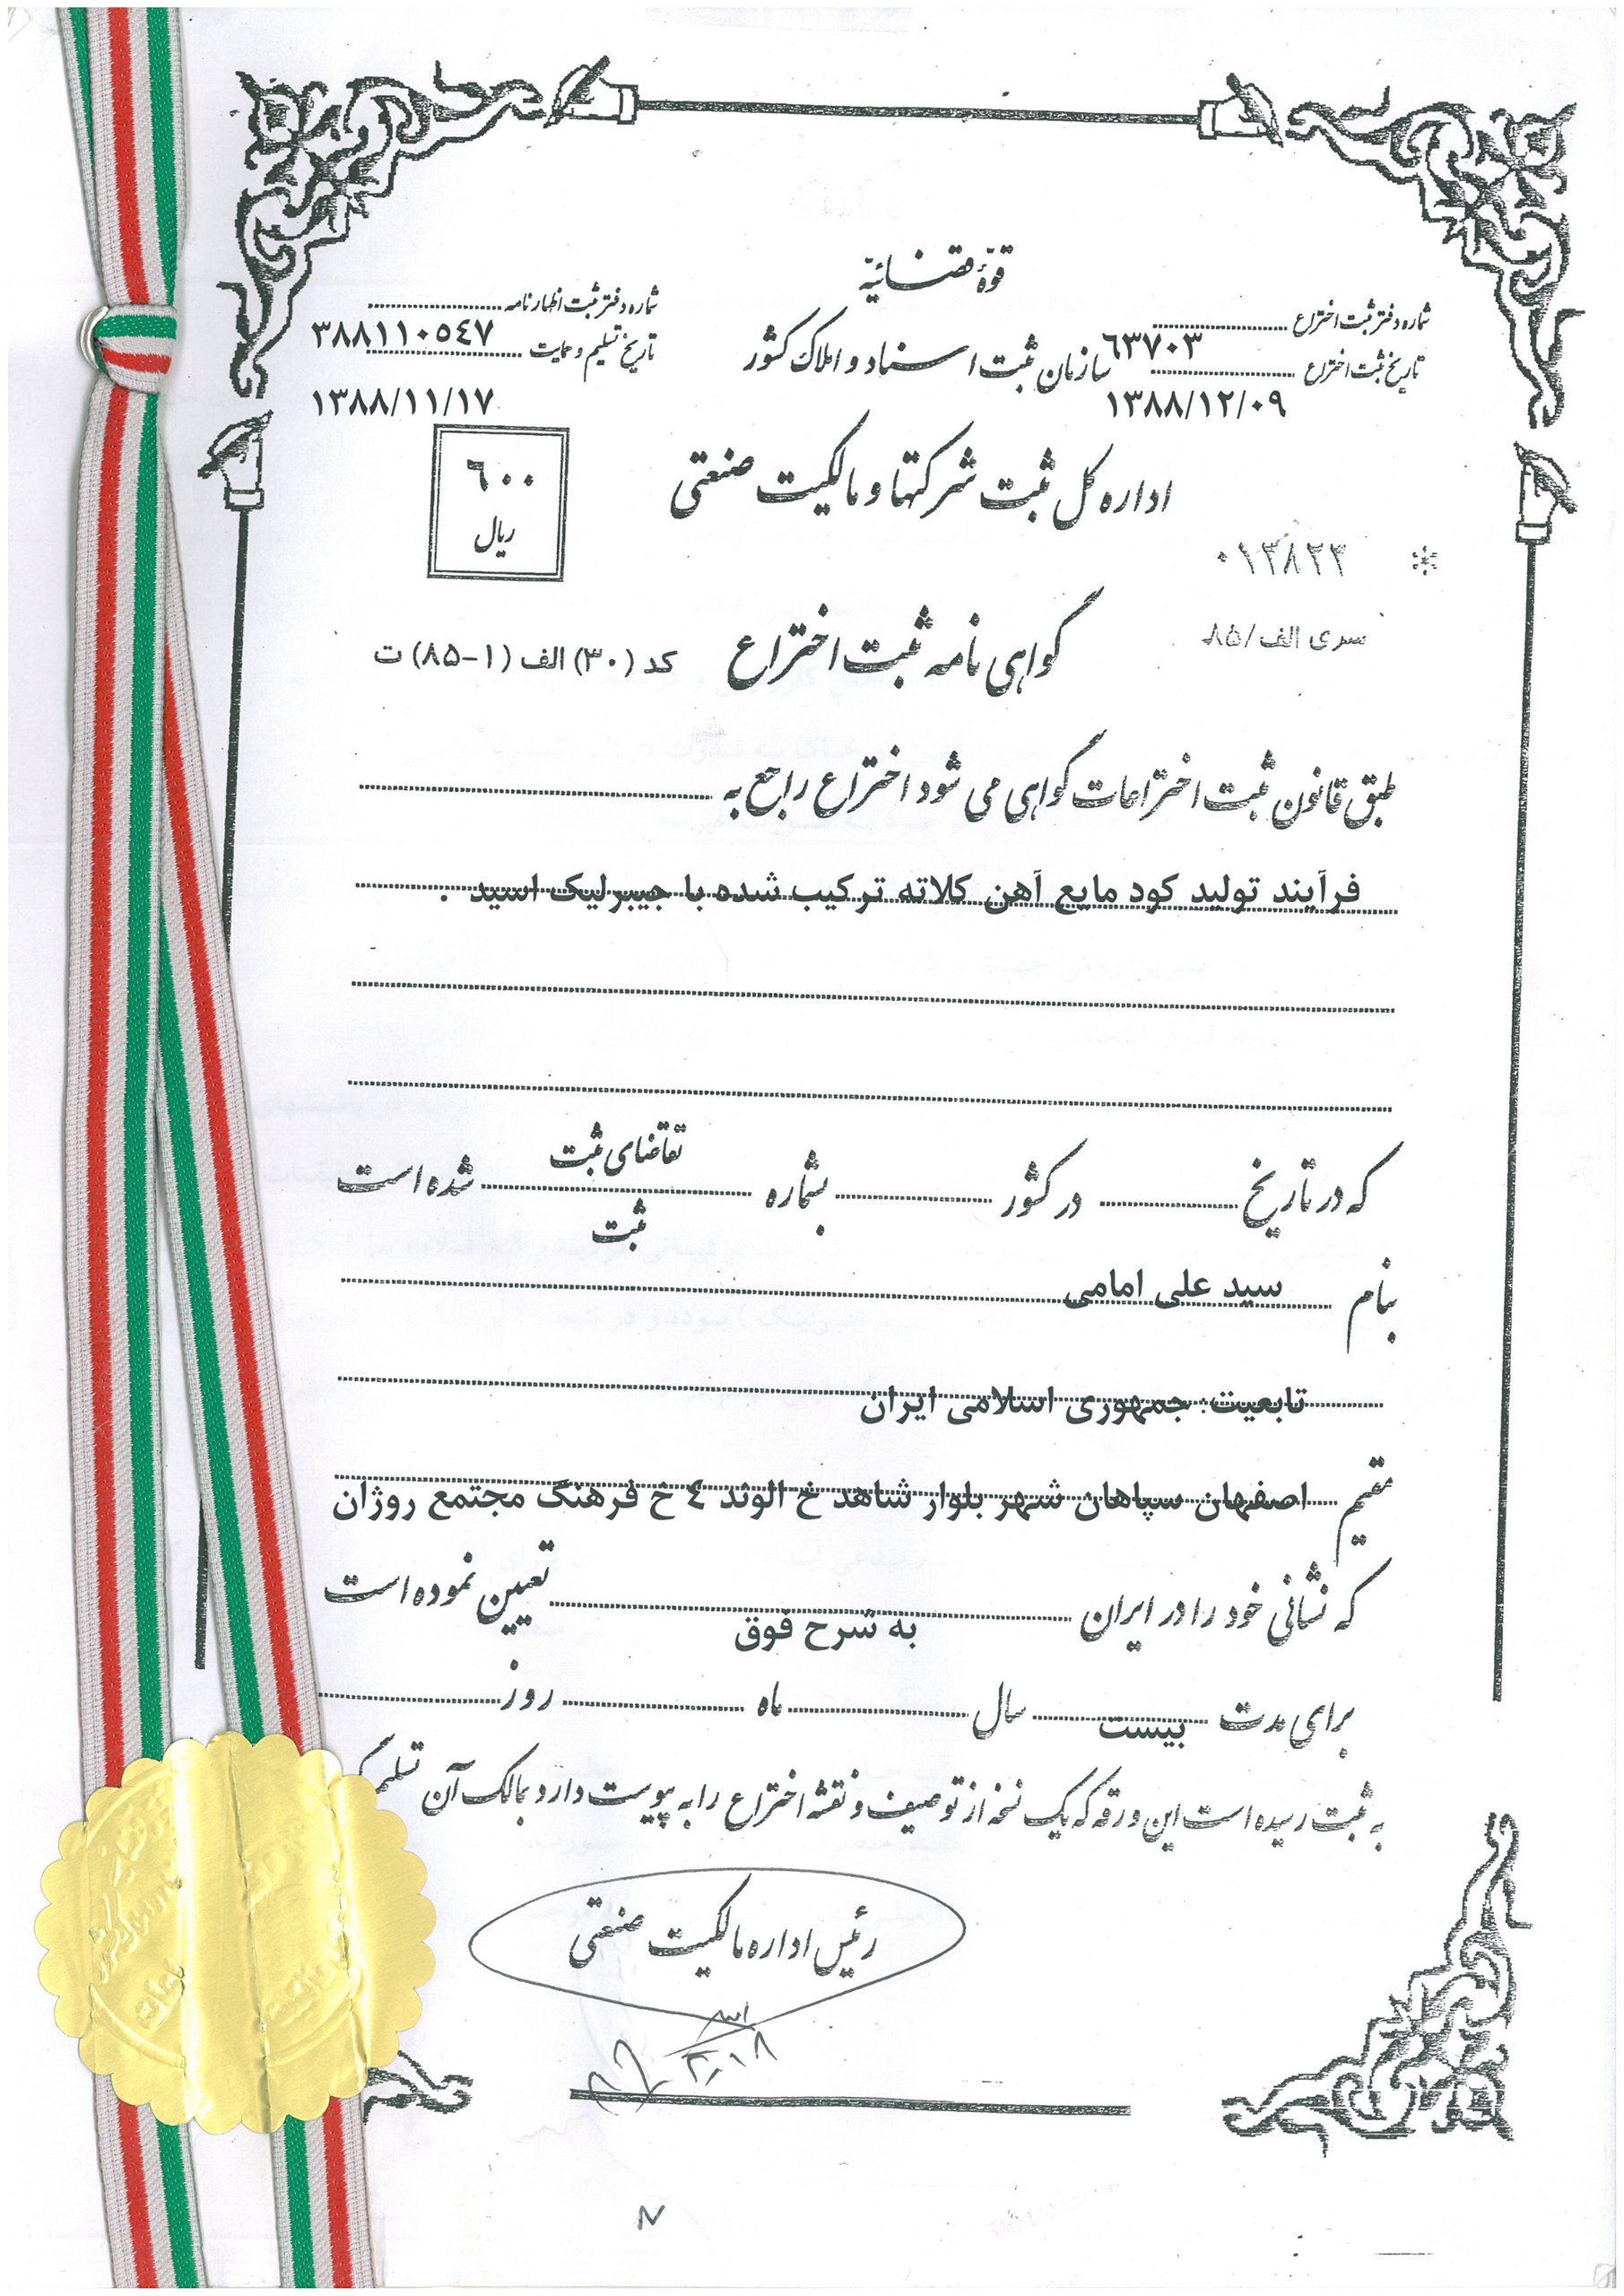 قوّهٔ قضائیّه
شماره دفتر ثبت اختراع
۶۳۷۰۳
تاریخ ثبت اختراع
۱۳۸۸/۱۲/۰۹
سازمان ثبت اسناد و املاک کشور
شماره دفتر ثبت اظهارنامه
۳۸۸۱۱۰۵٤۷
تاریخ تسلیم و حمایت
۱۳۸۸/۱۱/۱۷
اداره کل ثبت شرکتها و مالکیت صنعتی
٦۰۰
ریال
* ۰۱۳۸۲۳
سری الف/۸۵
گواهی نامه ثبت اختراع
کد (۳۰) الف (۱-۸۵) ت
طبق قانون ثبت اختراعات گواهی می شود اختراع راجع به
فرآیند تولید کود مایع آهن کلاته ترکیب شده با جیبرلیک اسید .
که در تاریخ در کشور بشماره تقاضای ثبت شده است
ثبت
بنام سید علی امامی
تابعیت: جمهوری اسلامی ایران
مقیم اصفهان سپاهان شهر بلوار شاهد خ الوند ٤ خ فرهنگ مجتمع روژان
که نشانی خود را در ایران به شرح فوق تعیین نموده است
برای مدت بیست سال ماه روز
به ثبت رسیده است این ورقه که یک نسخه از توصیف و نقشه اختراع را به پیوست دارد بمالک آن تسلیم
رئیس اداره مالکیت صنعتی